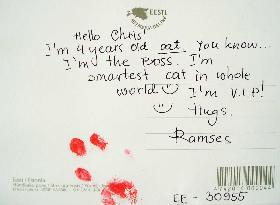 EESTI
Hello Chris
I'm 4 years old cat. You know...
I'm the Boss. I'm
smartest cat in whole
world I'm V.I.P!
Hugs.
Ramses
Eesti / Estonia
EE - 30955